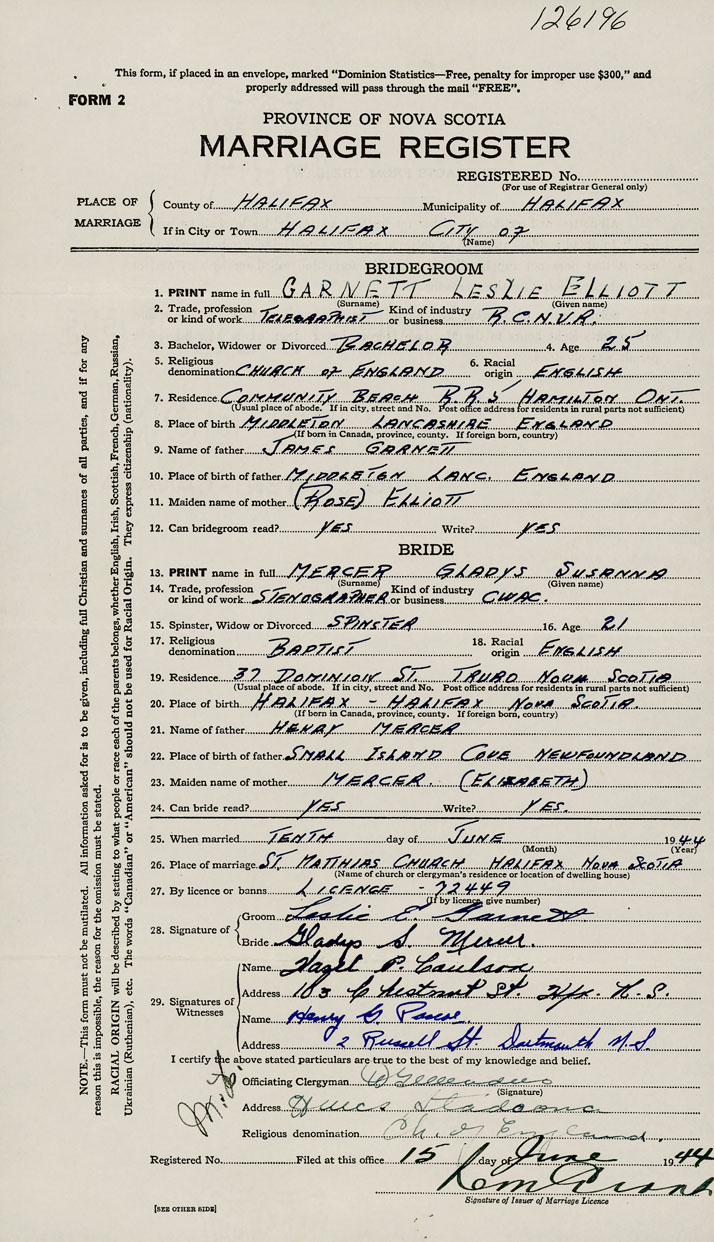 126196
This form, if placed in an envelope, marked "Dominion Statistics—Free, penalty for improper use $300," and
properly addressed will pass through the mail "FREE".
FORM 2
PROVINCE OF NOVA SCOTIA
MARRIAGE REGISTER
REGISTERED No.
(For use of Registrar General only)
PLACE OF MARRIAGE
County of HALIFAX Municipality of HALIFAX
If in City or Town HALIFAX CITY OF
(Name)
BRIDEGROOM
1. PRINT name in full GARNETT LESLIE ELLIOTT
(Surname) (Given name)
2. Trade, profession or kind of work TELEGRAPHIST Kind of industry or business R.C.N.V.R.
3. Bachelor, Widower or Divorced BACHELOR 4. Age 25
5. Religious denomination CHURCH OF ENGLAND 6. Racial origin ENGLISH
7. Residence COMMUNITY BEACH R.R.5 HAMILTON ONT.
(Usual place of abode. If in city, street and No. Post office address for residents in rural parts not sufficient)
8. Place of birth MIDDLETON LANCASHIRE ENGLAND
(If born in Canada, province, county. If foreign born, country)
9. Name of father JAMES GARNETT
10. Place of birth of father MIDDLETON LANC. ENGLAND
11. Maiden name of mother (ROSE) ELLIOTT
12. Can bridegroom read? YES Write? YES
BRIDE
13. PRINT name in full MERCER GLADYS SUSANNA
(Surname) (Given name)
14. Trade, profession or kind of work STENOGRAPHER Kind of industry or business CWAC.
15. Spinster, Widow or Divorced SPINSTER 16. Age 21
17. Religious denomination BAPTIST 18. Racial origin ENGLISH
19. Residence 37 DOMINION ST. TRURO NOVA SCOTIA
(Usual place of abode. If in city, street and No. Post office address for residents in rural parts not sufficient)
20. Place of birth HALIFAX - HALIFAX NOVA SCOTIA.
(If born in Canada, province, county. If foreign born, country)
21. Name of father HENRY MERCER
22. Place of birth of father SMALL ISLAND COVE NEWFOUNDLAND
23. Maiden name of mother MERCER. (ELIZABETH)
24. Can bride read? YES Write? YES.
25. When married TENTH day of JUNE 1944
(Month) (Year)
26. Place of marriage ST. MATTHIAS CHURCH HALIFAX NOVA SCOTIA
(Name of church or clergyman's residence or location of dwelling house)
27. By licence or banns LICENCE - 72449
(If by licence, give number)
28. Signature of
Groom Leslie E. Garnett
Bride Gladys S. Mercer.
29. Signatures of Witnesses
Name Hazel P. Coulson
Address 103 Chestnut St. Hfx. N.S.
Name Henry G. Pascoe.
Address 2 Russell St. Dartmouth N.S.
I certify the above stated particulars are true to the best of my knowledge and belief.
Officiating Clergyman
(Signature)
Address H.M.C.S. Stadacona
Religious denomination Ch. of England.
Registered No. Filed at this office 15 day of June 1944
Signature of Issuer of Marriage Licence
[SEE OTHER SIDE]
NOTE.—This form must not be mutilated. All information asked for is to be given, including full Christian and surnames of all parties, and if for any
reason this is impossible, the reason for the omission must be stated.
RACIAL ORIGIN will be described by stating to what people or race each of the parents belongs, whether English, Irish, Scottish, French, German, Russian,
Ukrainian (Ruthenian), etc. The words "Canadian" or "American" should not be used for Racial Origin. They express citizenship (nationality).